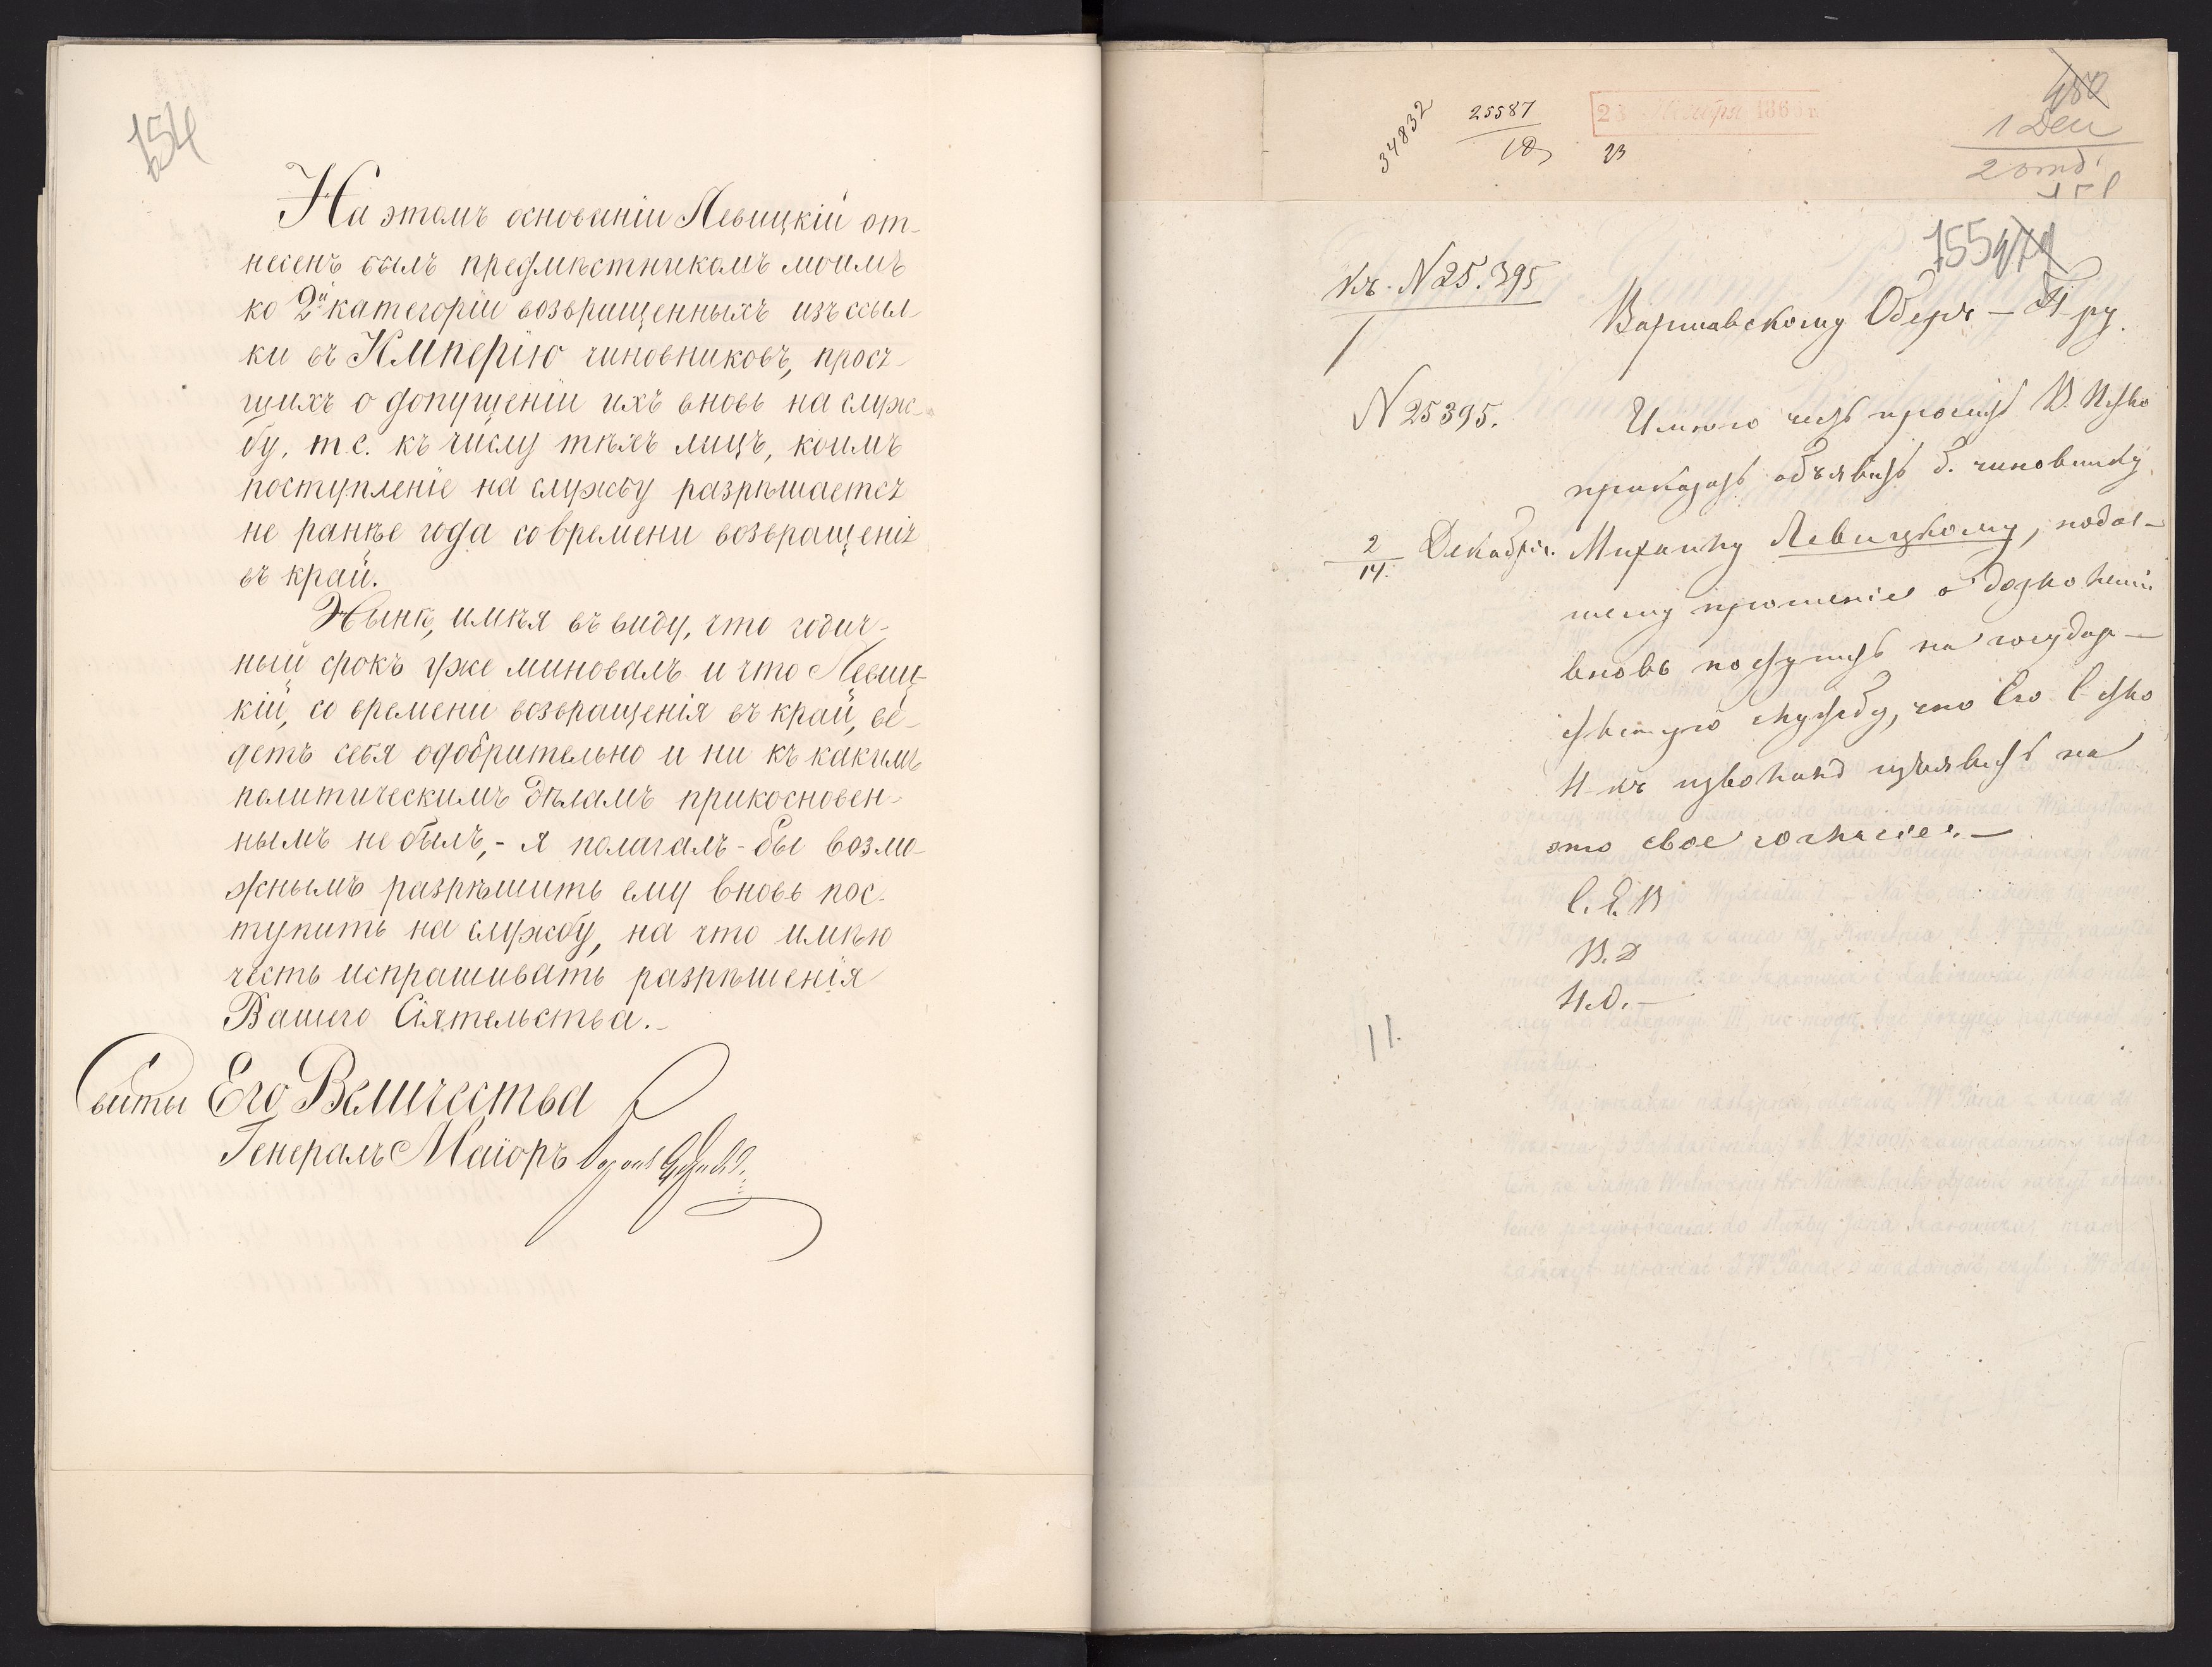 154
На этомъ основаніи Левицкій от-
несенъ былъ предмѣстникомъ моимъ
ко 2й категоріи возвращенныхъ изъ ссыл-
ки въ Имперію чиновниковъ, прося-
щихъ о допущеніи ихъ вновь на служ-
бу, т.е. къ числу тѣхъ лицъ, коимъ
поступленіе на службу разрѣшается
не ранѣе года со времени возвращенія
въ край.
Нынѣ, имѣя въ виду, что годич-
ный срокъ уже миновалъ и что Левиц-
кій, со времени возвращенія въ край, ве-
детъ себя одобрительно и ни къ какимъ
политическимъ дѣламъ прикосновен-
нымъ не былъ,- я полагалъ-бы возмо-
жнымъ разрѣшить ему вновь пос-
тупить на службу, на что имѣю
честь испрашивать разрѣшенія
Вашего Сіятельства.-
Свиты Его Величества
Генералъ Маіоръ
34832
25587
18
23
1 Деи
2 отд.
155
Къ. N 25.395
Варшавскому Оберъ-
N 25395.
Имѣю честь просить В.
приказать объявить б. чиновнику
2/14. Декабря.
Михаилу Левицкому, подав-
шему прошеніе о дозволеніи
вновь поступить на государ-
ственную службу, что Его С-ство
Н-къ изволилъ изъявить на
это свое согласіе.-
С. Е. В
В. Д
Н.О.-
11.